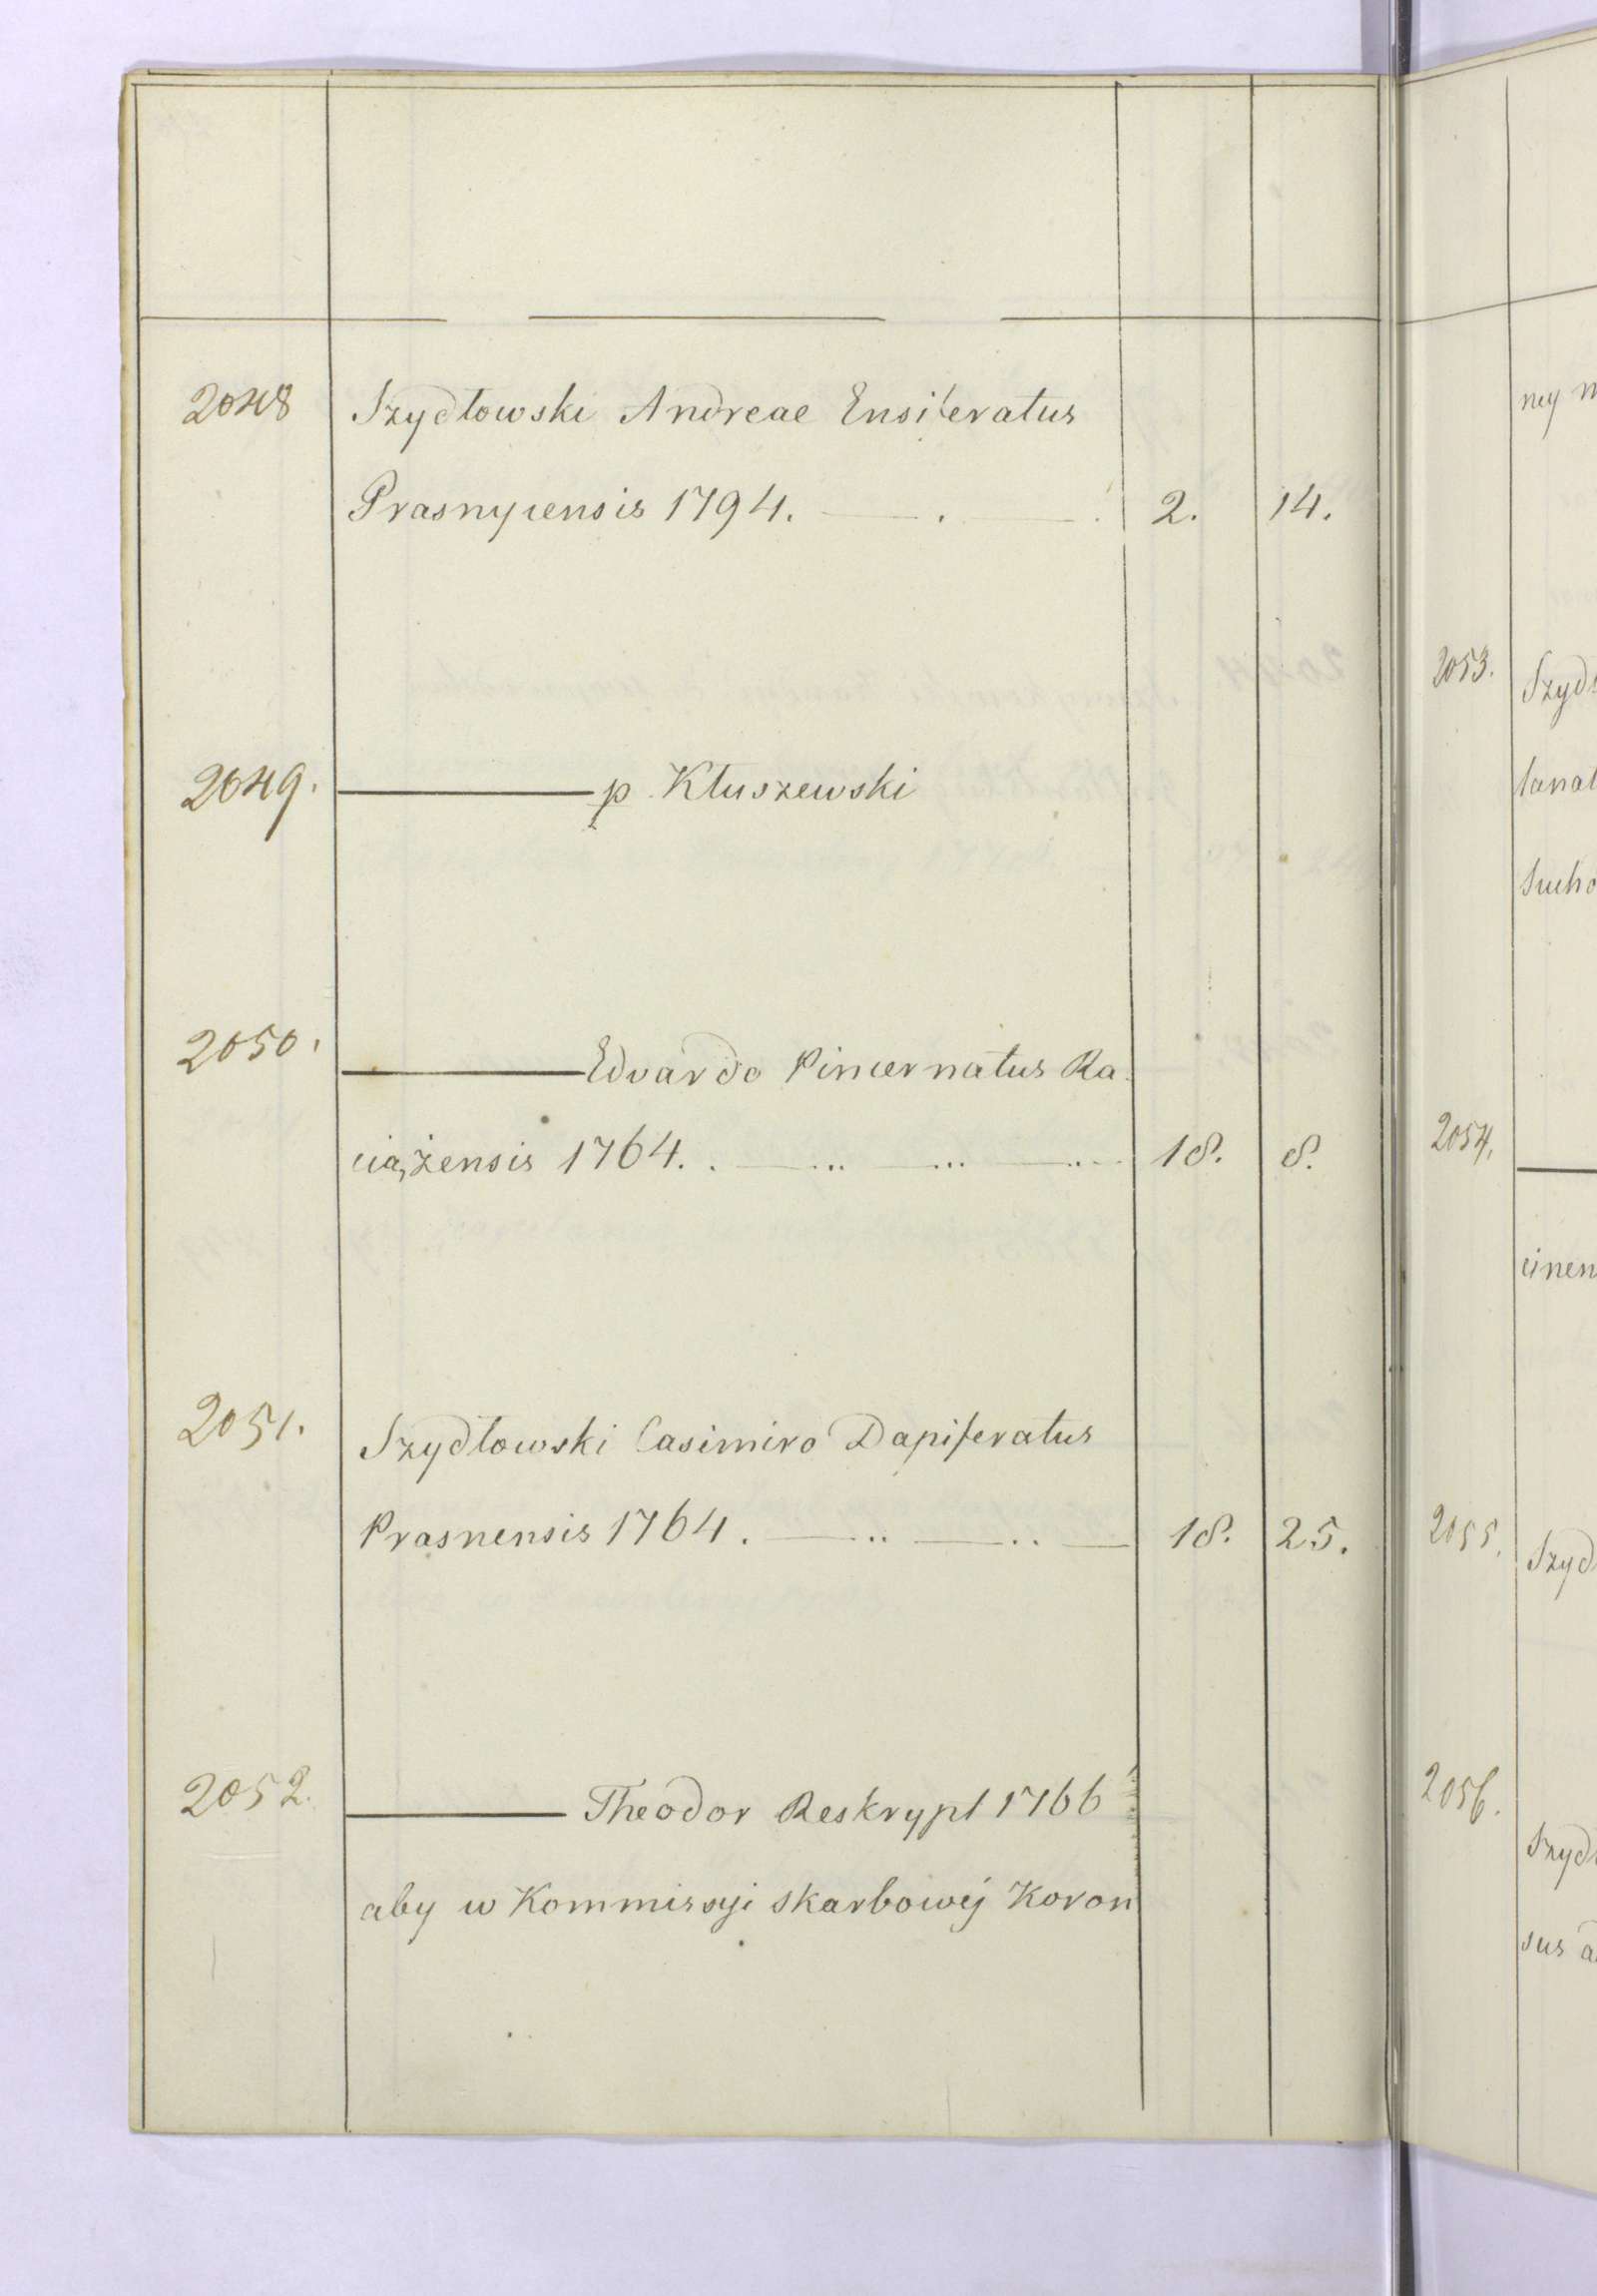 2048 Szydłowski Andreae Ensiferatus
Prasnycensis 1794. 2. 14.
2049. p Kłuszewski
2050. Edvardo Pincernatus Ra
ciążensis 1764. 18. 8.
2051. Szydłowski Casimiro Dapiferatus
Prasnensis 1764. 18. 25.
2052. Theodor Reskrypt 1766
aby w Kommissyi skarbowéj Koron
ney
2053. Szyd
lanat
Sucho
2054.
cinen
2055. Szyd
2056. Szyd
sus